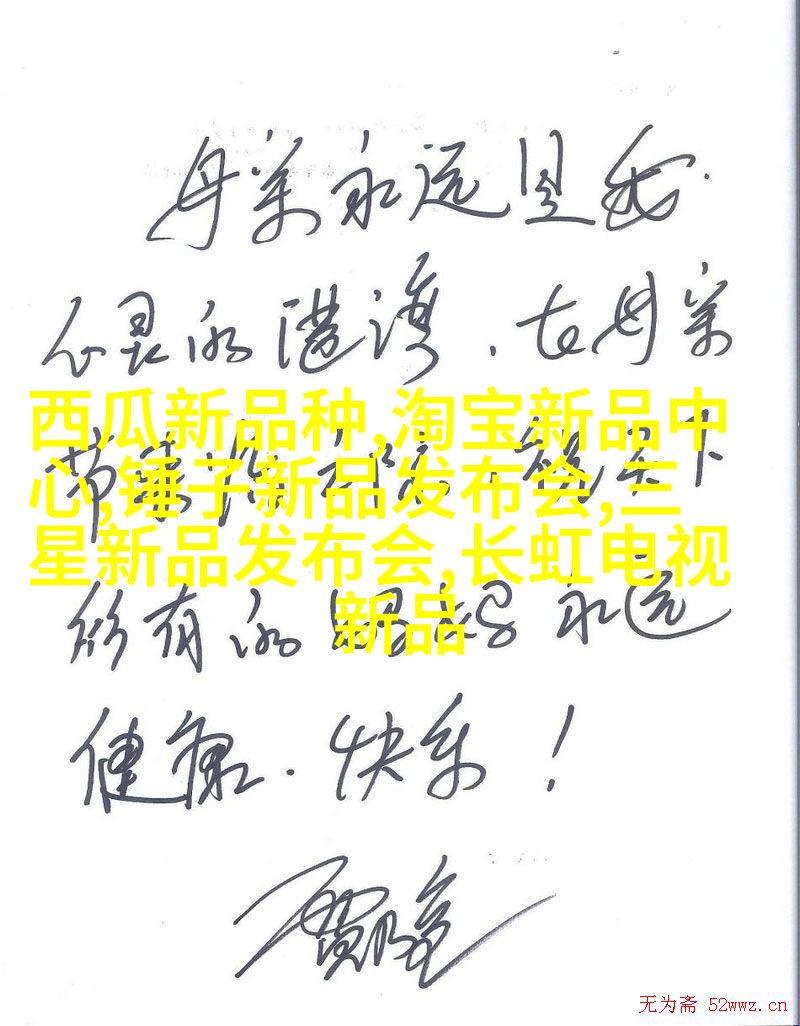 母亲永远是我
心灵的港湾，在母亲
节来临之际，祝天下
所有的妈妈永远
健康、快乐！
西瓜新品种,淘宝新品中
心,锤子新品发布会,三
星新品发布会,长虹电视
新品
无为斋 52wwz.cn